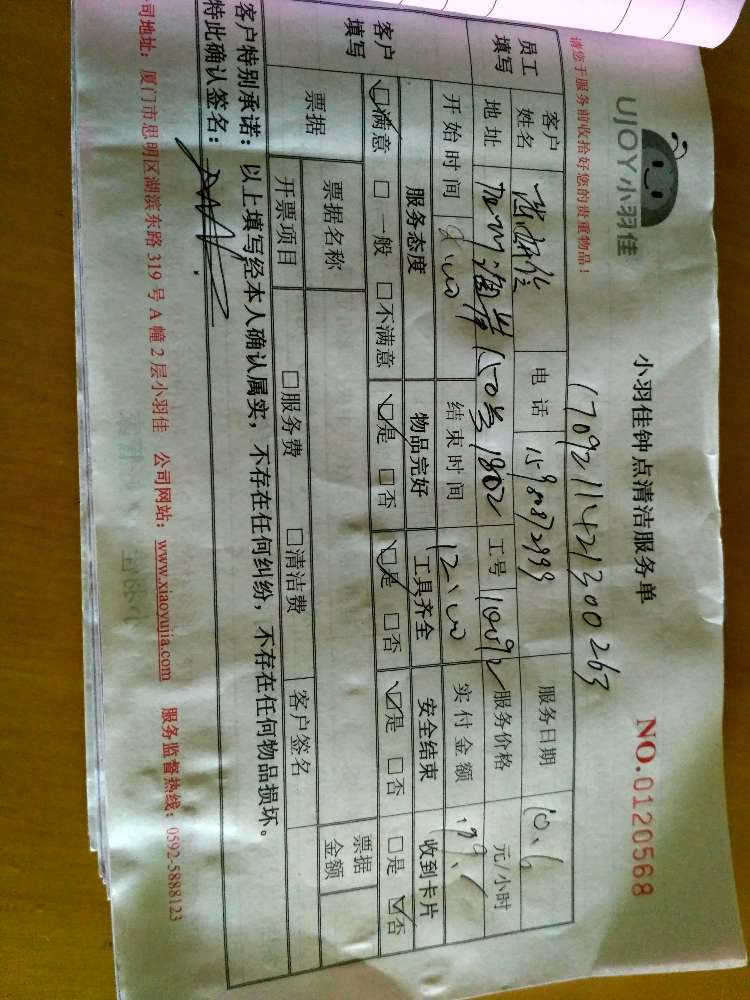 UJOY小羽佳
小羽佳钟点清洁服务单
NO.0120568
请您于服务前收拾好您的贵重物品！
1709211421300263
员工填写 客户姓名 电话 服务日期 10.6
地址 150号1802 工号 10092 服务价格 元/小时
开始时间 8:00 结束时间 12:00 实付金额
客户填写 服务态度 物品完好 工具齐全 安全结束 收到卡片
☑满意 □一般 □不满意 ☑是 □否 ☑是 □否 ☑是 □否 □是 ☑否
票据 票据名称 票据金额
开票项目 □服务费 □清洁费 客户签名
客户特别承诺：以上填写经本人确认属实，不存在任何纠纷，不存在任何物品损坏。
特此确认签名：
司地址：厦门市思明区湖滨东路319号A幢2层小羽佳 公司网站：www.xiaoyujia.com 服务监督热线：0592-5888123